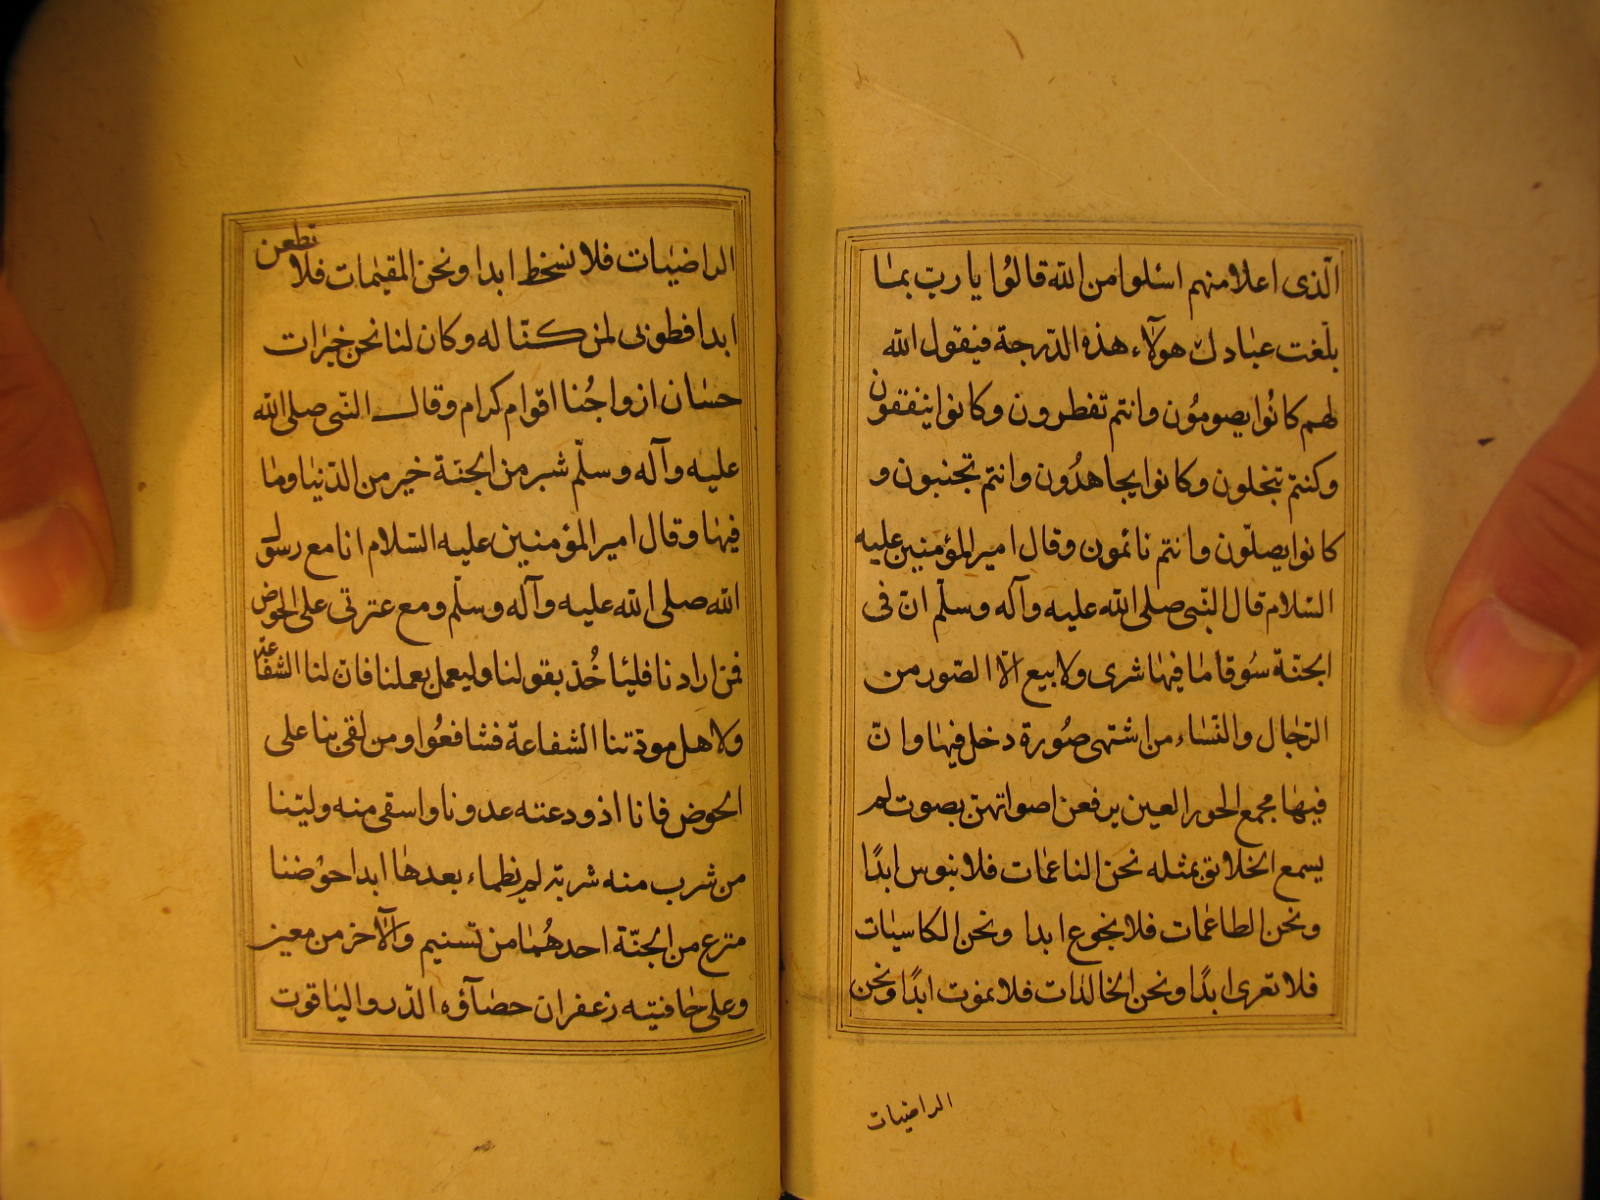 الّذى اعلا منهم اسئلوا من الله قالوُا يا ربّ بما
بلّغت عبادك هولآء هذه الدّرجة فيقول الله
لهم كانُوا يصومُون وانتم تفطرون وكانوا ينفقون
وكنتم تبخلون وكانوا يجاهدُون وانتم تجنبون و
كانوا يصلّون وانتم نائمون وقال امير المؤمنين عليه
السّلام قال النّبى صلى الله عليه وآله وسلّم انّ فى
الجنّة سُوقاً ما فيها شرى ولا بيع الّا الصّور من
الرّجال والنّساء من اشتهى صُورة دخل فيها وانّ
فيها مجمع الحور العين يرفعن اصواتهنّ بصوت لم
يسمع الخلائق بمثله نحن الناعمات فلا نبوس ابدًا
ونحن الطاعمات فلا نجوع ابدا ونحن الكاسيات
فلا نعرى ابدًا ونحن الخالدات فلا نموت ابدًا ونحن
الراضيات
الراضيات فلا نسخط ابدا ونحن المقيمات فلا نطعن
ابدا فطوبى لمن كنّا له وكان لنا نحن خيرات
حسان ازواجُنا اقوام كرام وقال النّبى صلى الله
عليه وآله وسلّم شبر من الجنّة خير من الدّنيا وما
فيها وقال امير المؤمنين عليه السّلام انا مع رسول
الله صلى الله عليه وآله وسلّم ومع عترتى على الحوض
فمن ارادنا فليأخُذ بقولنا وليعمل بعملنا فانّ لنا الشفاعة
ولاهل مودّتنا الشفاعة فشافعُوا ومن لقى بنا على
الحوض فانا اذود عنه عدونا واسقى منه وليّنا
من شرب منه شربة لم يظماء بعدها ابدا حوُضنا
مترع من الجنّة احدهُما من تسنيم والآخر من معين
وعلى حافتيه زعفران حصآؤه الدّر والياقوت